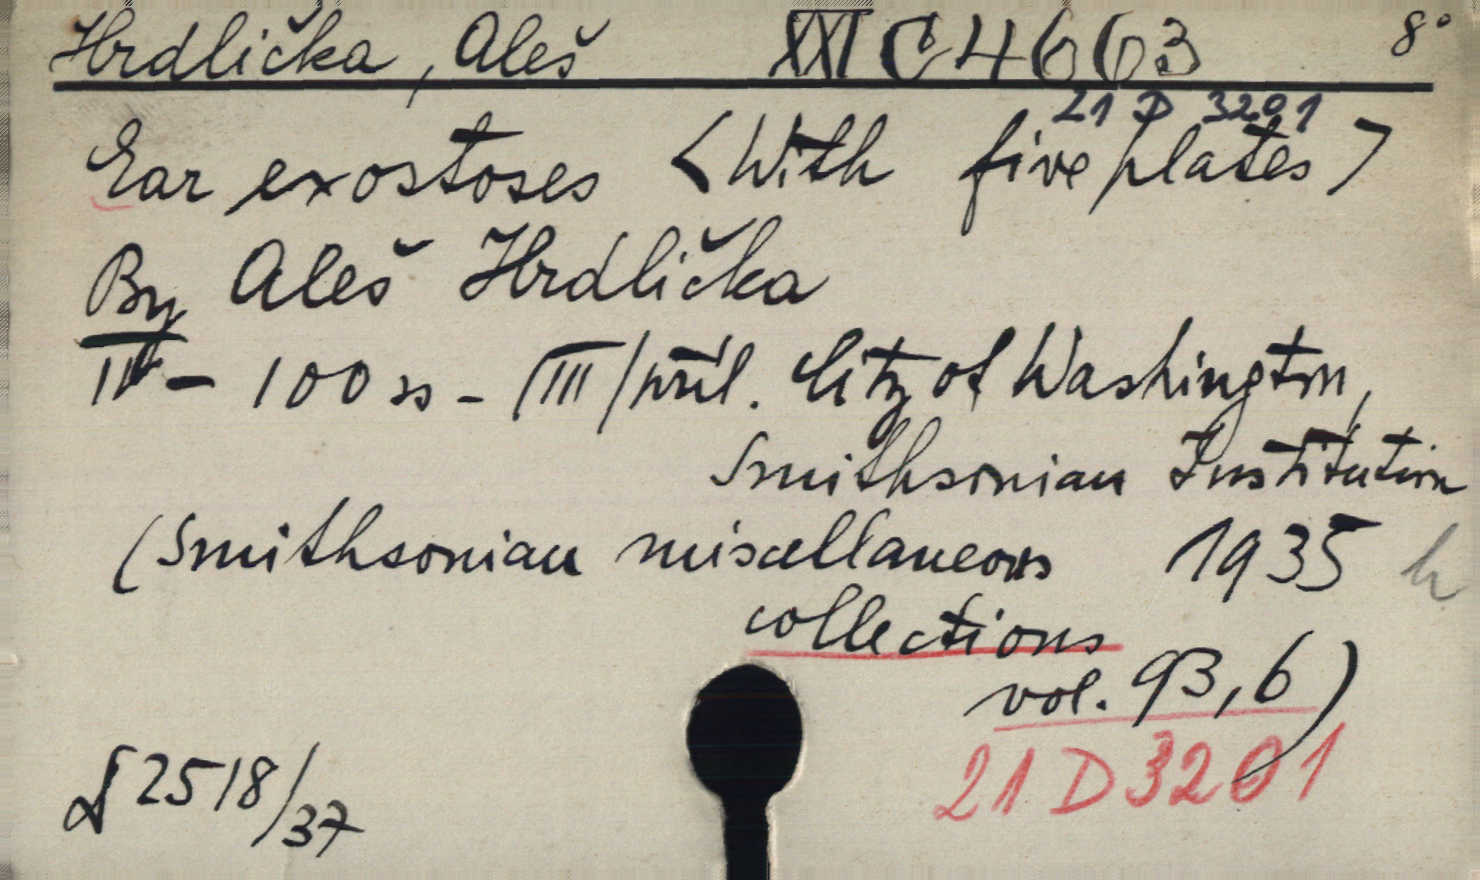 Hrdlička, Aleš XXI C 4663 8°
21 D 3201
Ear exostoses <With five plates>
By Aleš Hrdlička
IV - 100 ss - (III) příl. City of Washington,
Smithsonian Institution
(Smithsonian miscellaneous 1935 h
collections
vol. 93,6)
21 D 3201
2518/37